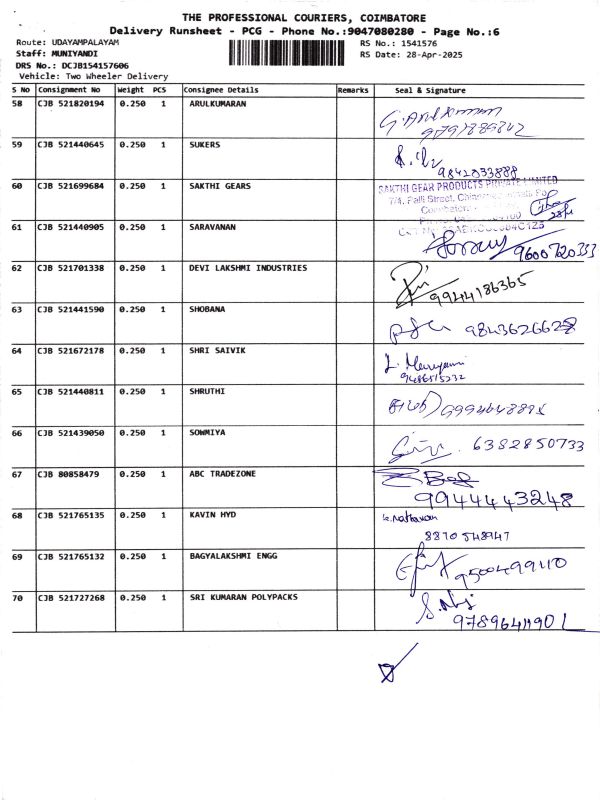 THE PROFESSIONAL COURIERS, COIMBATORE
Delivery Runsheet - PCG - Phone No.:9047080280 - Page No.:6
Route: UDAYAMPALAYAM RS No.: 1541576
Staff: MUNIYANDI RS Date: 28-Apr-2025
DRS No.: DCJB154157606
Vehicle: Two Wheeler Delivery
S No Consignment No Weight PCS Consignee Details Remarks Seal & Signature
58 CJB 521820194 0.250 1 ARULKUMARAN
G. Arulkumaran
59 CJB 521440645 0.250 1 SUKERS
9842033888
60 CJB 521699684 0.250 1 SAKTHI GEARS SAKTHI GEAR PRODUCTS PRIVATE LIMITED
7/4, Palli Street,
61 CJB 521440905 0.250 1 SARAVANAN
9600720333
62 CJB 521701338 0.250 1 DEVI LAKSHMI INDUSTRIES
9944186365
63 CJB 521441590 0.250 1 SHOBANA
9843626628
64 CJB 521672178 0.250 1 SHRI SAIVIK
9486515232
65 CJB 521440811 0.250 1 SHRUTHI
66 CJB 521439050 0.250 1 SOWMIYA
6382850733
67 CJB 80858479 0.250 1 ABC TRADEZONE
9944443248
68 CJB 521765135 0.250 1 KAVIN HYD
8870548947
69 CJB 521765132 0.250 1 BAGYALAKSHMI ENGG
9500499110
70 CJB 521727268 0.250 1 SRI KUMARAN POLYPACKS
9789641901